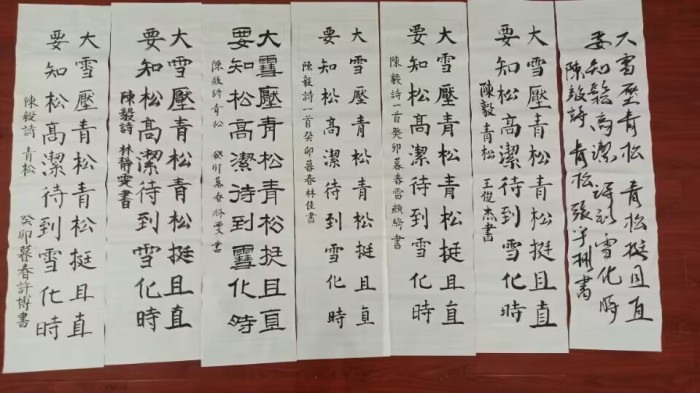 大雪壓青松青松挺且直
要知松高潔待到雪化時
陳毅詩青松張宇書
大雪壓青松青松挺且直
要知松高潔待到雪化時
陳毅青松王俊杰書
大雪壓青松青松挺且直
要知松高潔待到雪化時
陳毅詩一首癸卯暮春雷顏書
大雪壓青松青松挺且直
要知松高潔待到雪化時
陳毅詩一首癸卯暮春林佳書
大雪壓青松青松挺且直
要知松高潔待到雪化時
陳毅詩青松癸卯暮春雯書
大雪壓青松青松挺且直
要知松高潔待到雪化時
陳毅詩林靜雯書
大雪壓青松青松挺且直
要知松高潔待到雪化時
陳毅詩青松癸卯暮春許博書